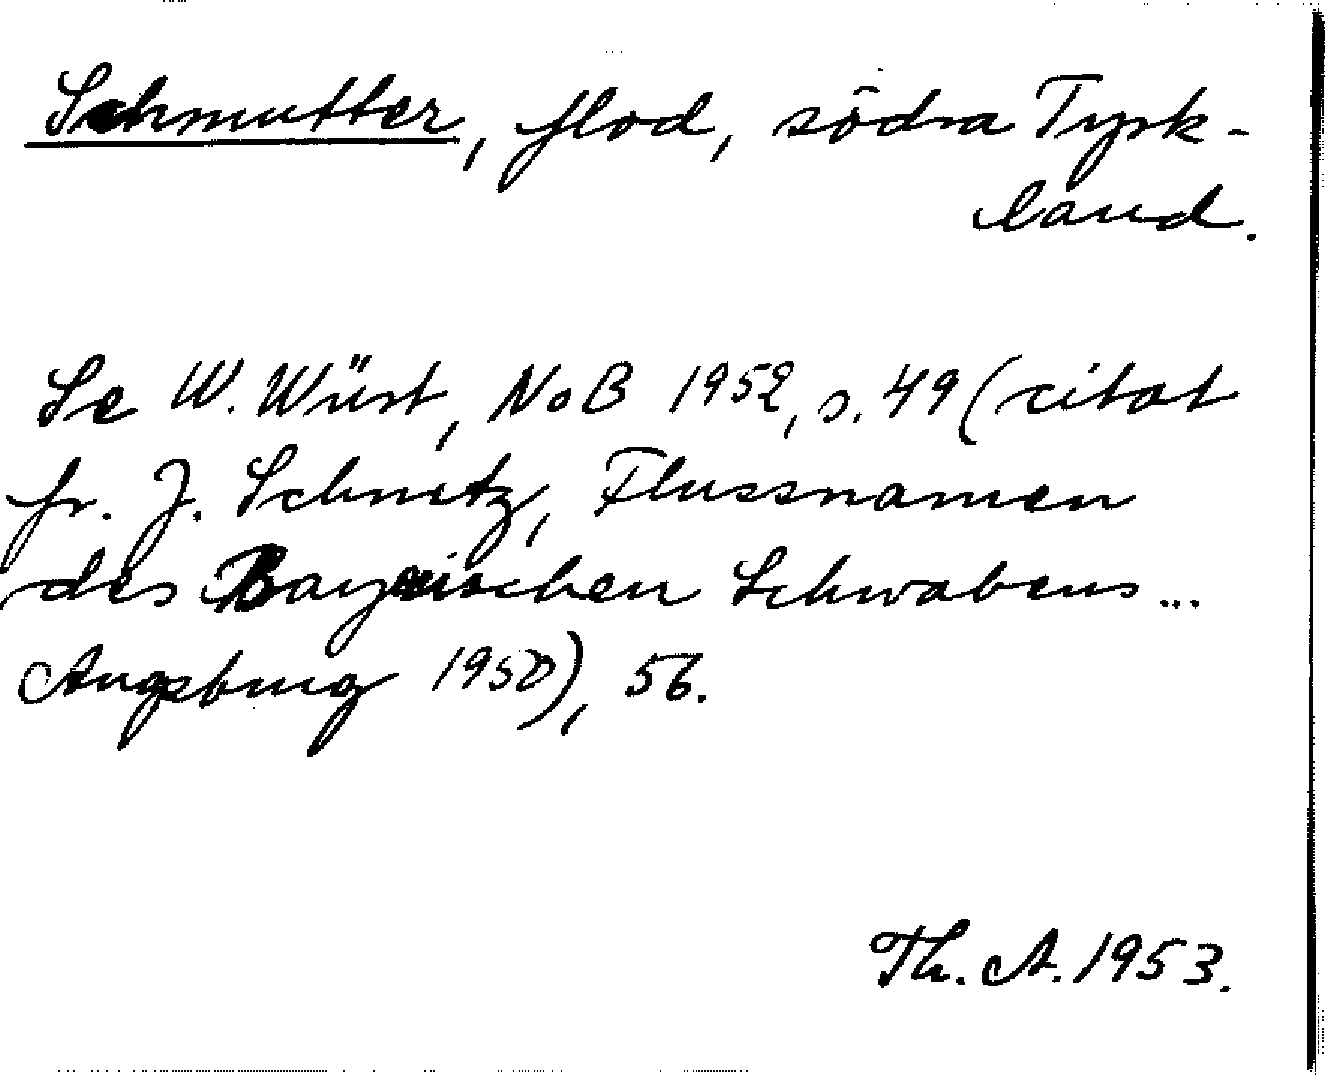 Schmutter, flod, södra Tysk-
land.
Se W. Wüst, NoB 1952, s. 49 (citat
fr. J. Schnetz, Flussnamen
des Bayerischen Schwabens ...
Augsburg 1950), 56.
Th. A. 1953.